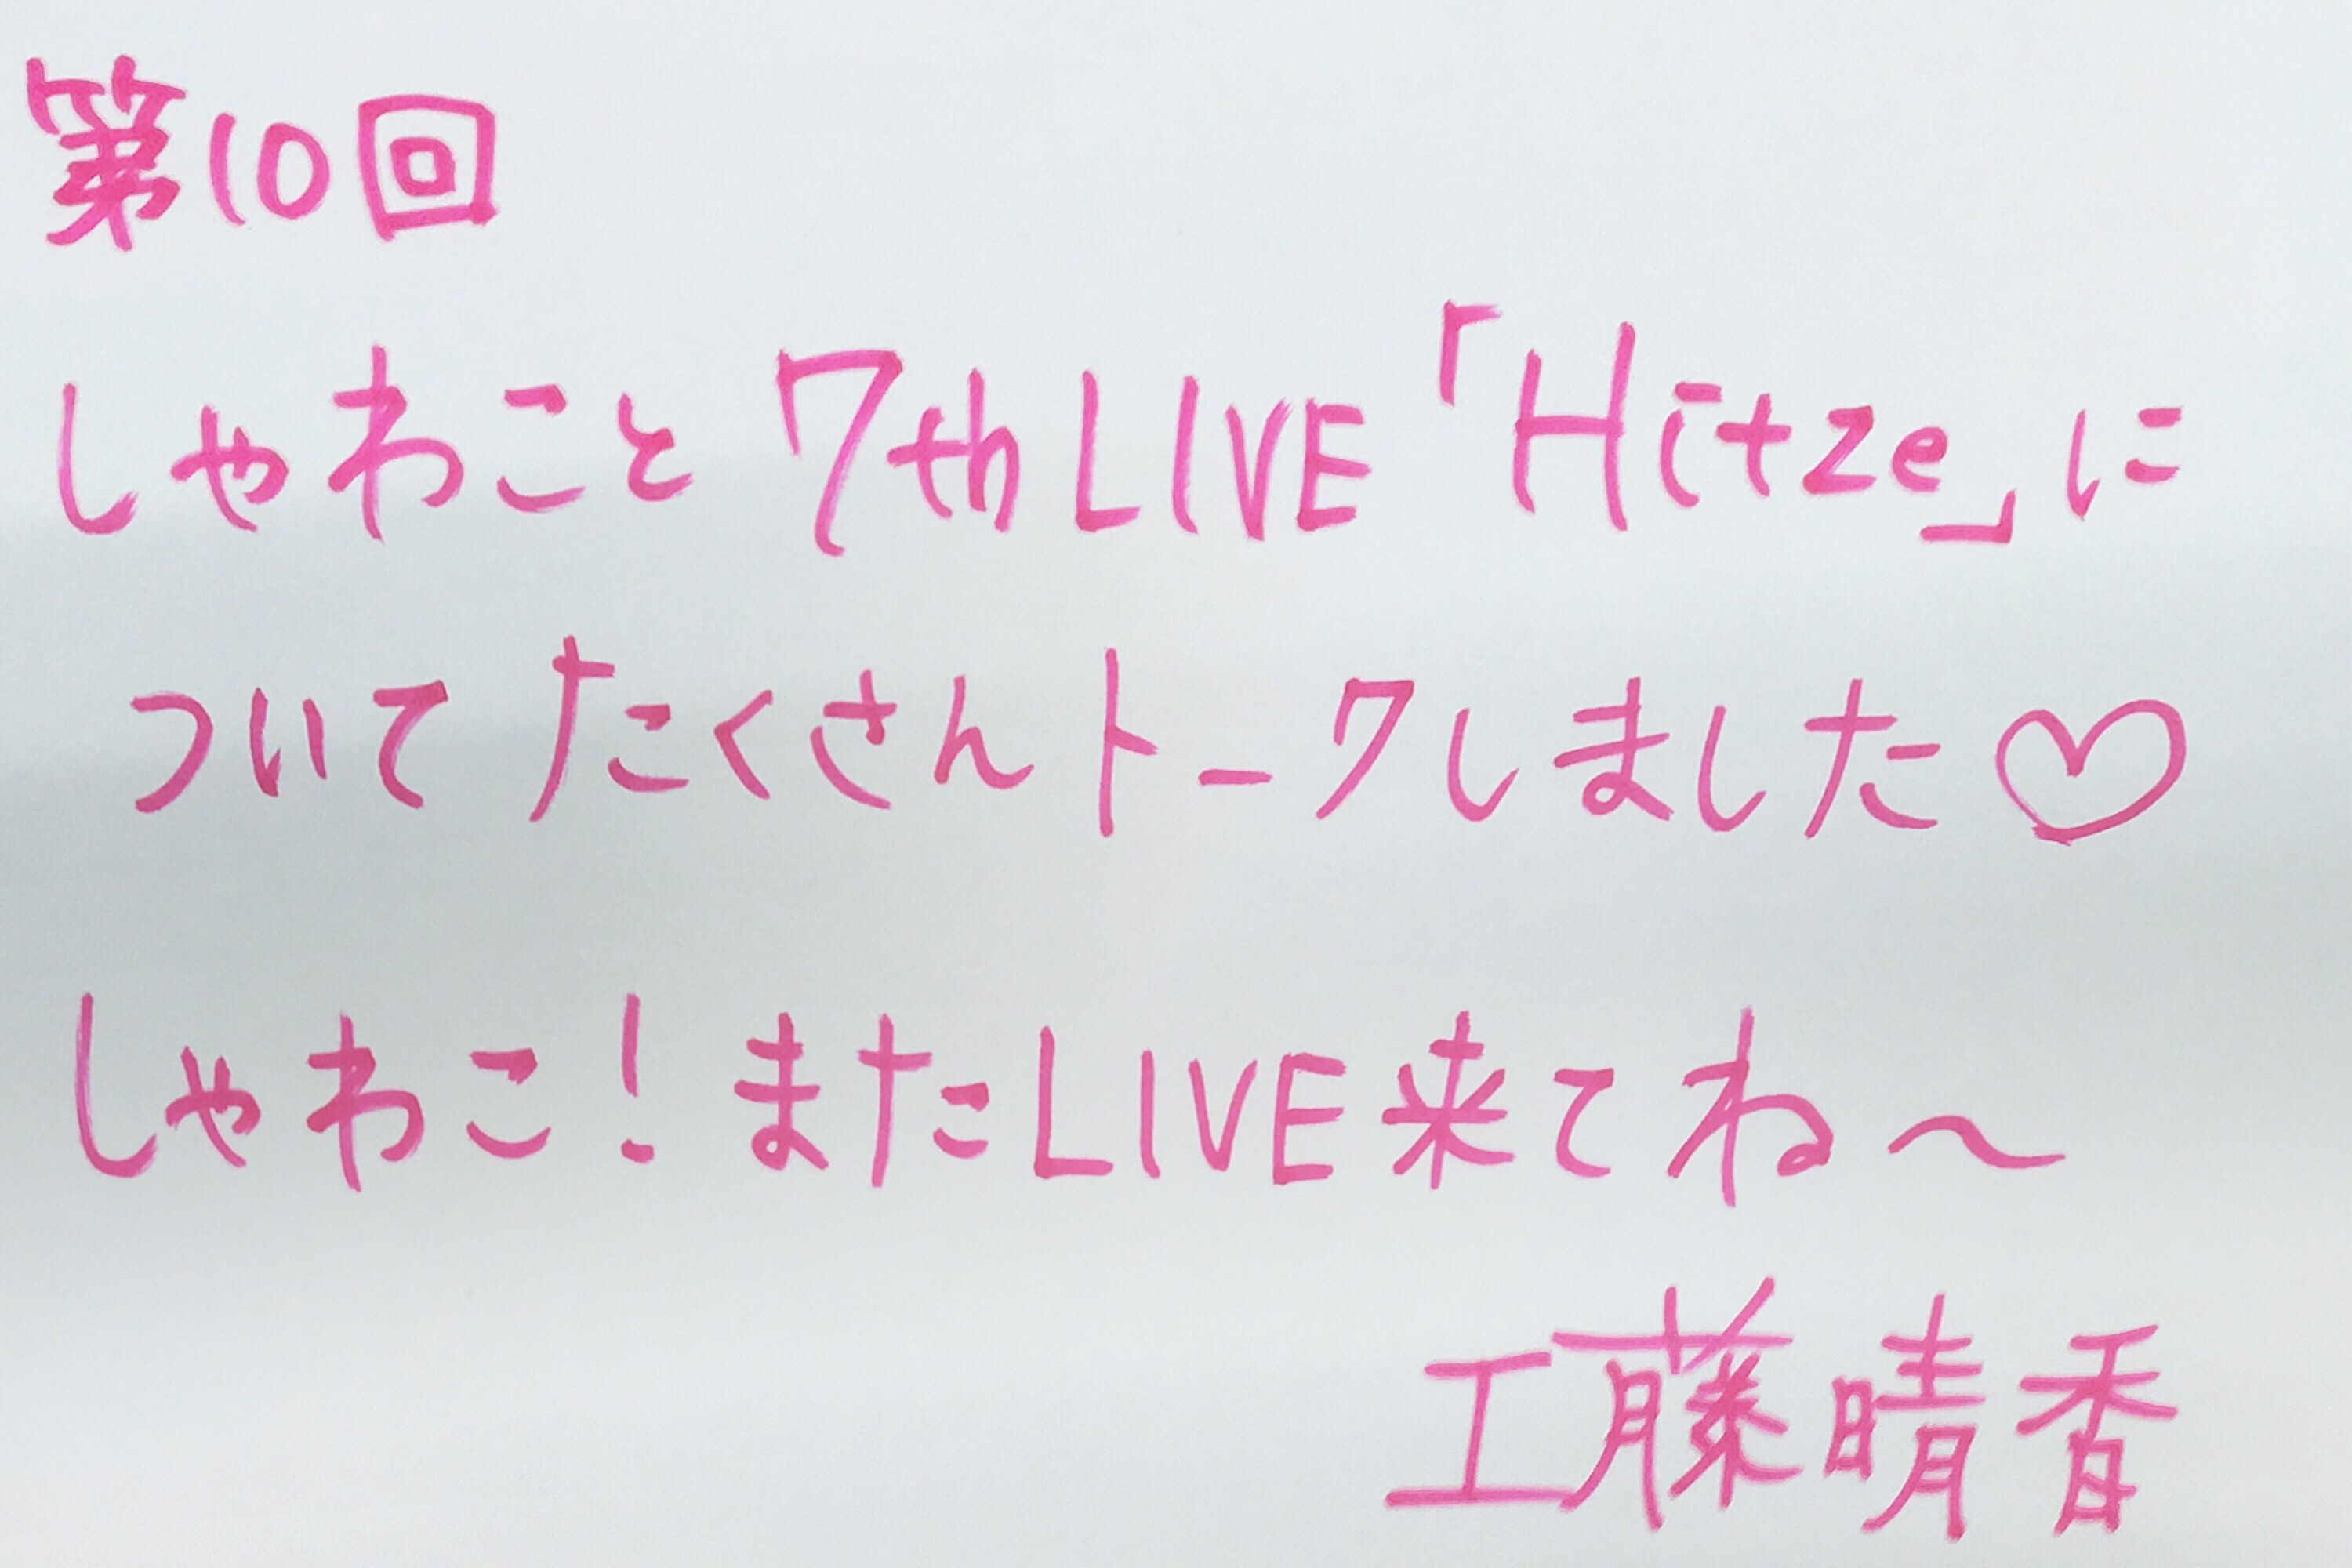 第10回
しゃわこと 7th LIVE「Hitze」に
ついて たくさんトークしました♡
しゃわこ！またLIVE来てね〜
工藤晴香